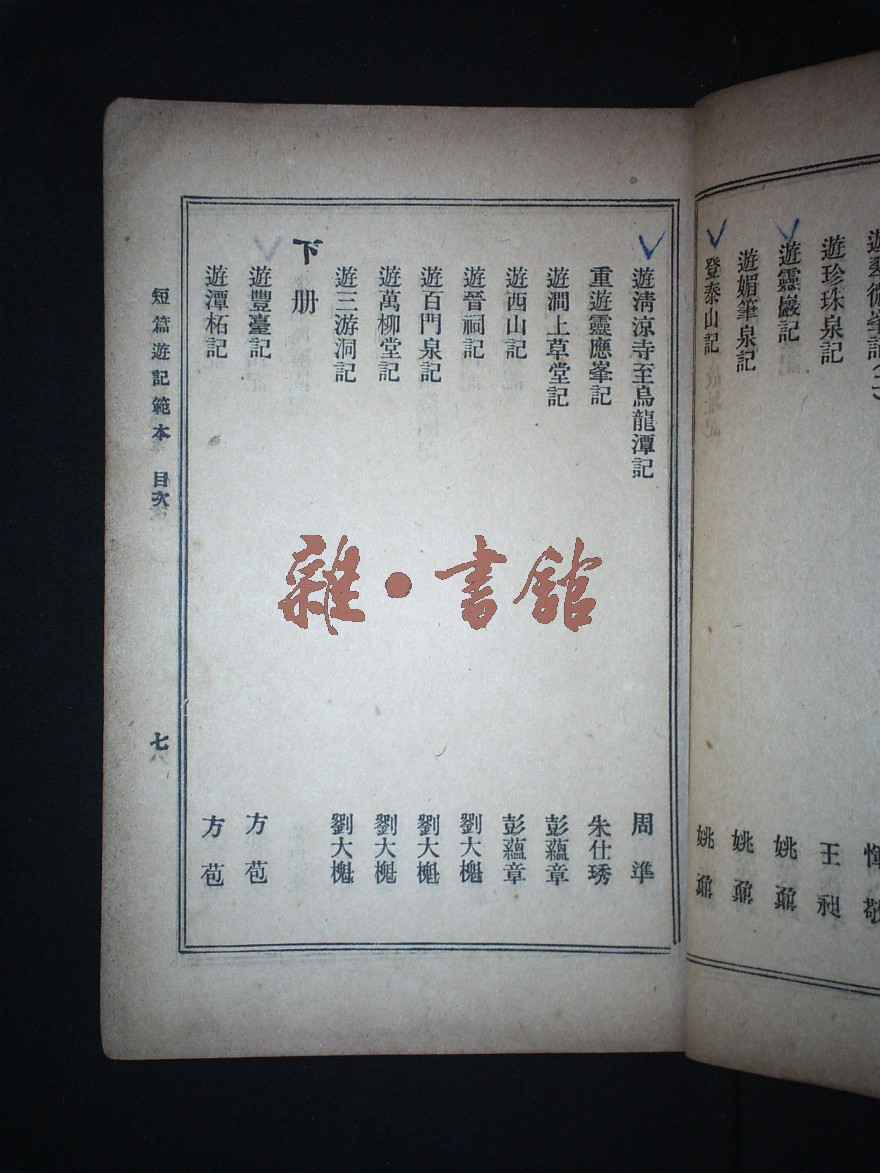 遊珍珠泉記 王昶
遊靈巖記 姚鼐
遊媚筆泉記 姚鼐
登泰山記 姚鼐
遊清涼寺至烏龍潭記 周準
重遊靈應峯記 朱仕琇
遊澗上草堂記 彭蘊章
遊西山記 彭蘊章
遊晉祠記 劉大櫆
遊百門泉記 劉大櫆
遊萬柳堂記 劉大櫆
遊三游洞記 劉大櫆
下册
遊豐臺記 方苞
遊潭柘記 方苞
短篇遊記範本 目次
七
雜·書館